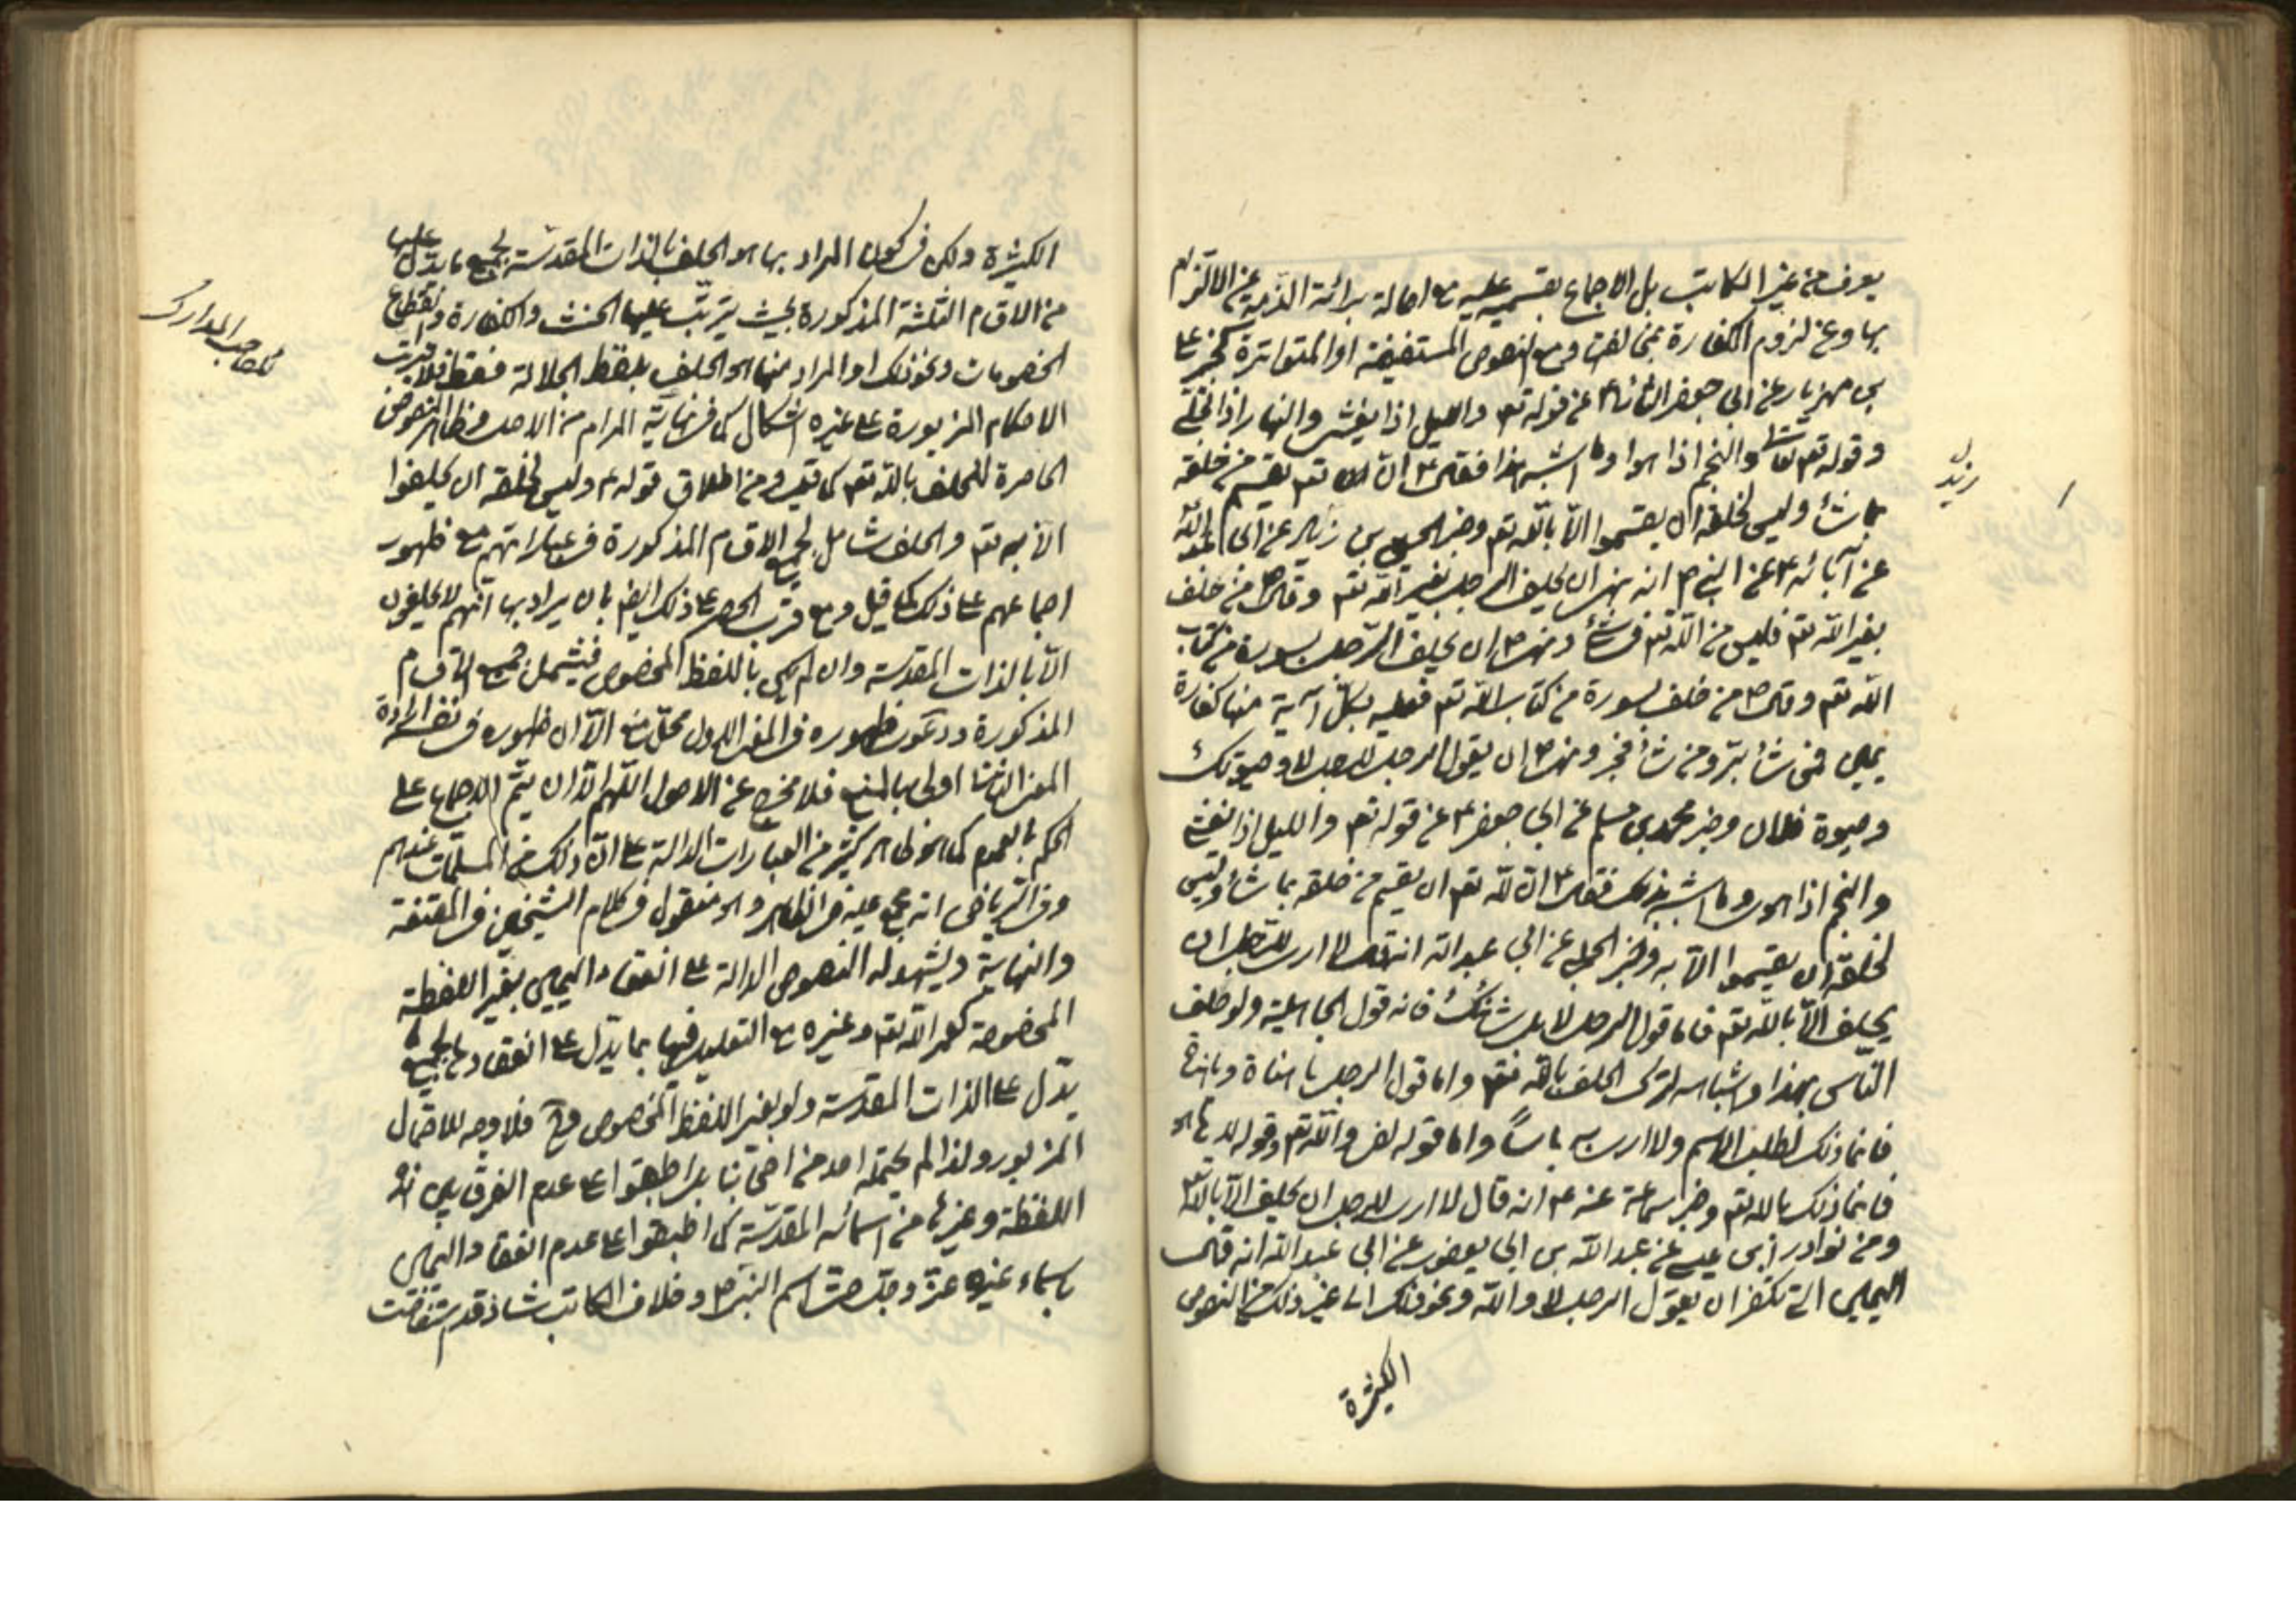 يعرف من غير الكاتب بل الاجماع بقسميه عليه مع اصالة برائة الذمة عن الالتزام
بها وعن لزوم الكفارة بمخالفتها ومع النصوص المستفيضة او المتواترة كخبر علي
بن مهزيار عن ابي جعفر الثاني ع عن قوله تعم والليل اذا يغشى والنهار اذا تجلى
وقوله تعم والنجم اذا هوا وما اشبه هذا فقال ع ان الله تعم يقسم من خلقه
بما شاء وليس لخلقه ان يقسموا الا بالله تعم وخبر الحسين بن زيد عن ابي عبد الله
عن آبائه ع عن النبي ص انه نهى ان يحلف الرجل بغير الله تعم وقال ص من حلف
بغير الله تعم فليس من الله تعم في شئ ونهى ص ان يحلف الرجل بسورة من كتاب
الله تعم وقال ص من حلف بسورة من كتاب الله تعم فعليه بكل آية منها كفارة
يمين فمن شاء بر ومن شاء فجر ونهى ص ان يقول الرجل للرجل لا وحيوتك
وحيوة فلان وخبر محمد بن مسلم عن ابي جعفر ع عن قوله تعم والليل اذا يغشى
والنجم اذا هوى وما اشبه ذلك فقال ع ان لله تعم ان يقسم من خلقه بما شاء وليس
لخلقه ان يقسموا الا به وخبر الحلبي عن ابي عبد الله انه قال لا ارى للرجل ان
يحلف الا بالله تعم فاما قول الرجل لا بل شانئك فانه قول الجاهلية ولو حلف
الناس بهذا واشباهه لترك الحلف بالله تعم واما قول الرجل يا هناة ويا هناه
فانما ذلك لطلب الاسم ولا ارى به باسا واما قوله لعمر الله تعم وقوله لا هاه
فانما ذلك بالله تعم وخبر سماعة عنه ع انه قال لا ارى للرجل ان يحلف الا بالله
ومن نوادر ابن عيسى عن عبد الله بن ابي يعفور عن ابي عبد الله انه قال
اليمين التي تكفر ان يقول الرجل لا والله ونحو ذلك الى غير ذلك من النصوص
الكثيرة
زيد
الكثيرة ولكن في كون المراد بها هو الحلف بالذات المقدسة بجميع ما يدل عليها
من الاقسام الثلثة المذكورة بحيث يترتب عليها الحنث والكفارة وانقطاع
الخصومات ونحو ذلك او المراد منها هو الحلف بلفظ الجلالة فقط فلا يترتب
الاحكام المزبورة على غيره اشكال كما في نهاية المرام من الاصل وظاهر النصوص
الحاصرة للحلف بالله تعم كما تقدم ومن اطلاق قوله ع وليس لخلقه ان يحلفوا
الا به تعم والحلف شامل لجميع الاقسام المذكورة في عباراتهم مع ظهور
اجماعهم على ذلك كما قيل ومع قرب الحصر على ذلك ايضا بان يراد بها انهم لا يحلفون
الا بالذات المقدسة وان لم يكن باللفظ المخصوص فيشمل جميع الاقسام
المذكورة ودعوى ظهوره في المعنى الاول محل منع الا ان ظهوره في نفي ارادة
المعنى الثاني اولى بالمنع فلا مخرج عن الاصول اللهم الا ان يتم الاجماع على
الحكم بالعموم كما هو ظاهر كثير من العبارات الدالة على ان ذلك من المسلمات عندهم
وفي الرياض انه مجمع عليه في الظاهر وهو منقول في كلام الشيخين في المقنعة
والنهاية ويشهد له النصوص الدالة على انعقاد اليمين بغير اللفظة
المخصوصة كعمر الله تعم وغيره مع التعليل فيها بما يدل على انعقادها بجميع ما
يدل على الذات المقدسة ولو بغير اللفظ المخصوص وح فلا وجه للاحتمال
المزبور ولذا لم يحتمله احد من اصحابنا بل اطبقوا على عدم الفرق بين هذه
اللفظة وغيرها من اسمائه المقدسة كما اطبقوا على عدم انعقاد اليمين
باسماء غيره عز وجل حتى اسم النبي ص وخلاف الكاتب شاذ قد استفاضت
لصاحب المدارك